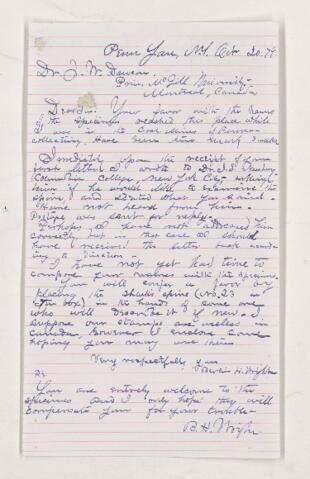 Penn Yan, N.Y. Oct 20. 79.
Dr. J. W. Dawson
Prin. McGill University
Montreal, Canada
Dr Sir: Your favor with the name
of the specimen reached this place while
I was in the Coal Mines of Penna
collecting. Have been home nearly 2 weeks
Immediately upon the receipt of your
first letter I wrote to Dr. J. S. Newberry
Columbia College, New York City - asking
him if he would like to examine the
spine, and stated what you said -
Have not heard from him -
Postage was sent for reply -
Perhaps I have not addressed him
correctly but in that case I should
have received the letter back accord-
ing to direction -
I have not yet had time to
compare your names with the specimens.
You will confer a favor by
placing the sharks spine (No. 23 in
the box) in the hands of some one
who will describe it if new - I
suppose our stamps are useless in
Canada, however I enclose some
hoping you may use them
Very respectfully yours
Berlin H. Wright
You are entirely welcome to the
specimens and I only hope they will
compensate you for your trouble -
B. H. Wright